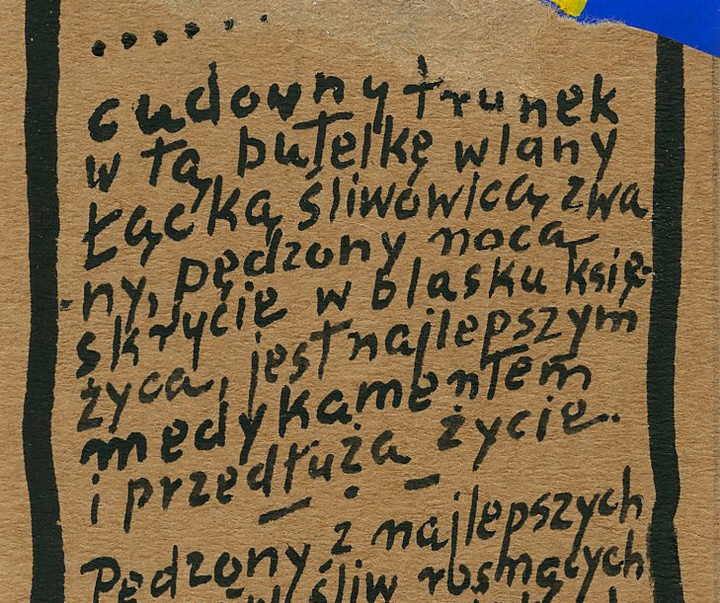 ......
cudowny trunek
w tą butelkę wlany
Łącką śliwowicą zwa
ny, pędzony nocą
skrycie w blasku księ-
życa, jest najlepszym
medykamentem
i przedłuża życie.
— • —
Pędzony z najlepszych
śliw rosnących